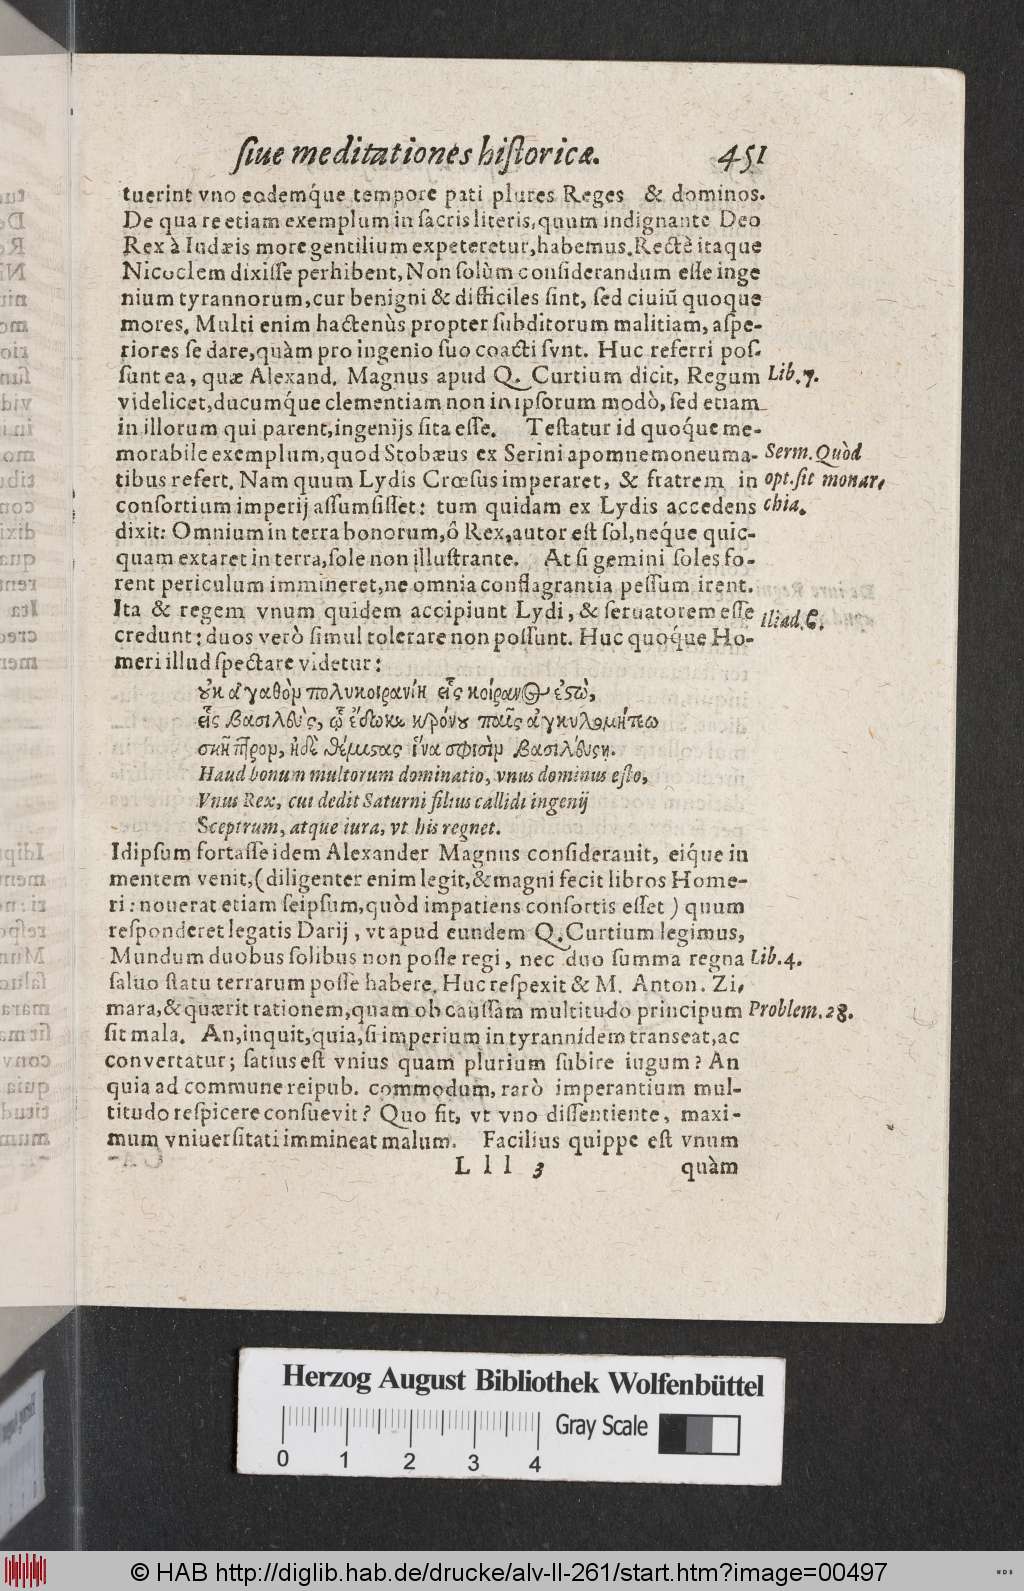 ſiue meditationes hiſtoricæ. 451
tuerint vno eodemq́ue tempore pati plures Reges & dominos.
De qua re etiam exemplum in ſacris literis, quum indignante Deo
Rex à Iudæis more gentilium expeteretur, habemus. Rectè itaque
Nicoclem dixiſſe perhibent, Non ſolùm conſiderandum eſſe inge
nium tyrannorum, cur benigni & difficiles ſint, ſed ciuiũ quoque
mores. Multi enim hactenùs propter ſubditorum malitiam, aſpe-
riores ſe dare, quàm pro ingenio ſuo coacti ſvnt. Huc referri poſ-
ſunt ea, quæ Alexand. Magnus apud Q. Curtium dicit, Regum Lib. 7.
videlicet, ducumq́ue clementiam non in ipſorum modò, ſed etiam
in illorum qui parent, ingenijs ſita eſſe. Teſtatur id quoq́ue me-
morabile exemplum, quod Stobæus ex Serini apomnemoneuma- Serm. Quòd
tibus refert. Nam quum Lydis Crœſus imperaret, & fratrem in opt. ſit monar,
conſortium imperij aſſumſiſſet: tum quidam ex Lydis accedens chia.
dixit: Omnium in terra bonorum, ô Rex, autor eſt ſol, neq́ue quic-
quam extaret in terra, ſole non illuſtrante. At ſi gemini ſoles fo-
rent periculum immineret, ne omnia conflagrantia peſſum irent.
Ita & regem vnum quidem accipiunt Lydi, & ſeruatorem eſſe iliad. ϐ.
credunt: duos verò ſimul tolerare non poſſunt. Huc quoq́ue Ho-
meri illud ſpectare videtur:
οὐκ ἀγαθὸν πολυκοιρανίη εἷς κοίρανος ἐστὼ,
εἷς βασιλεὺς, ᾧ ἔδωκε κρόνου παῖς ἀγκυλομήτεω
σκῆπτρον, ἠδὲ θέμιστας ἵνα σφισὶν βασιλεύῃ.
Haud bonum multorum dominatio, vnus dominus eſto,
Vnus Rex, cui dedit Saturni filius callidi ingenij
Sceptrum, atque iura, vt his regnet.
Idipſum fortaſſe idem Alexander Magnus conſiderauit, eiq́ue in
mentem venit, (diligenter enim legit, & magni fecit libros Home-
ri: nouerat etiam ſeipſum, quòd impatiens conſortis eſſet) quum
reſponderet legatis Darij, vt apud eundem Q. Curtium legimus,
Mundum duobus ſolibus non poſſe regi, nec duo ſumma regna Lib. 4.
ſaluo ſtatu terrarum poſſe habere. Huc reſpexit & M. Anton. Zi,
mara, & quærit rationem, quam ob cauſſam multitudo principum Problem. 28.
ſit mala. An, inquit, quia, ſi imperium in tyrannidem tranſeat, ac
convertatur; ſatius eſt vnius quam plurium ſubire iugum? An
quia ad commune reipub. commodum, rarò imperantium mul-
titudo reſpicere conſuevit? Quo fit, vt vno diſſentiente, maxi-
mum vniuerſitati immineat malum. Facilius quippe eſt vnum
L l l 3 quàm
Herzog August Bibliothek Wolfenbüttel
Gray Scale
0 1 2 3 4
© HAB http://diglib.hab.de/drucke/alv-ll-261/start.htm?image=00497